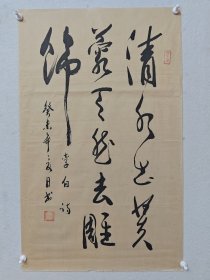 清水出芙
蓉天然去雕
饰
李白诗
癸未年之夏月书